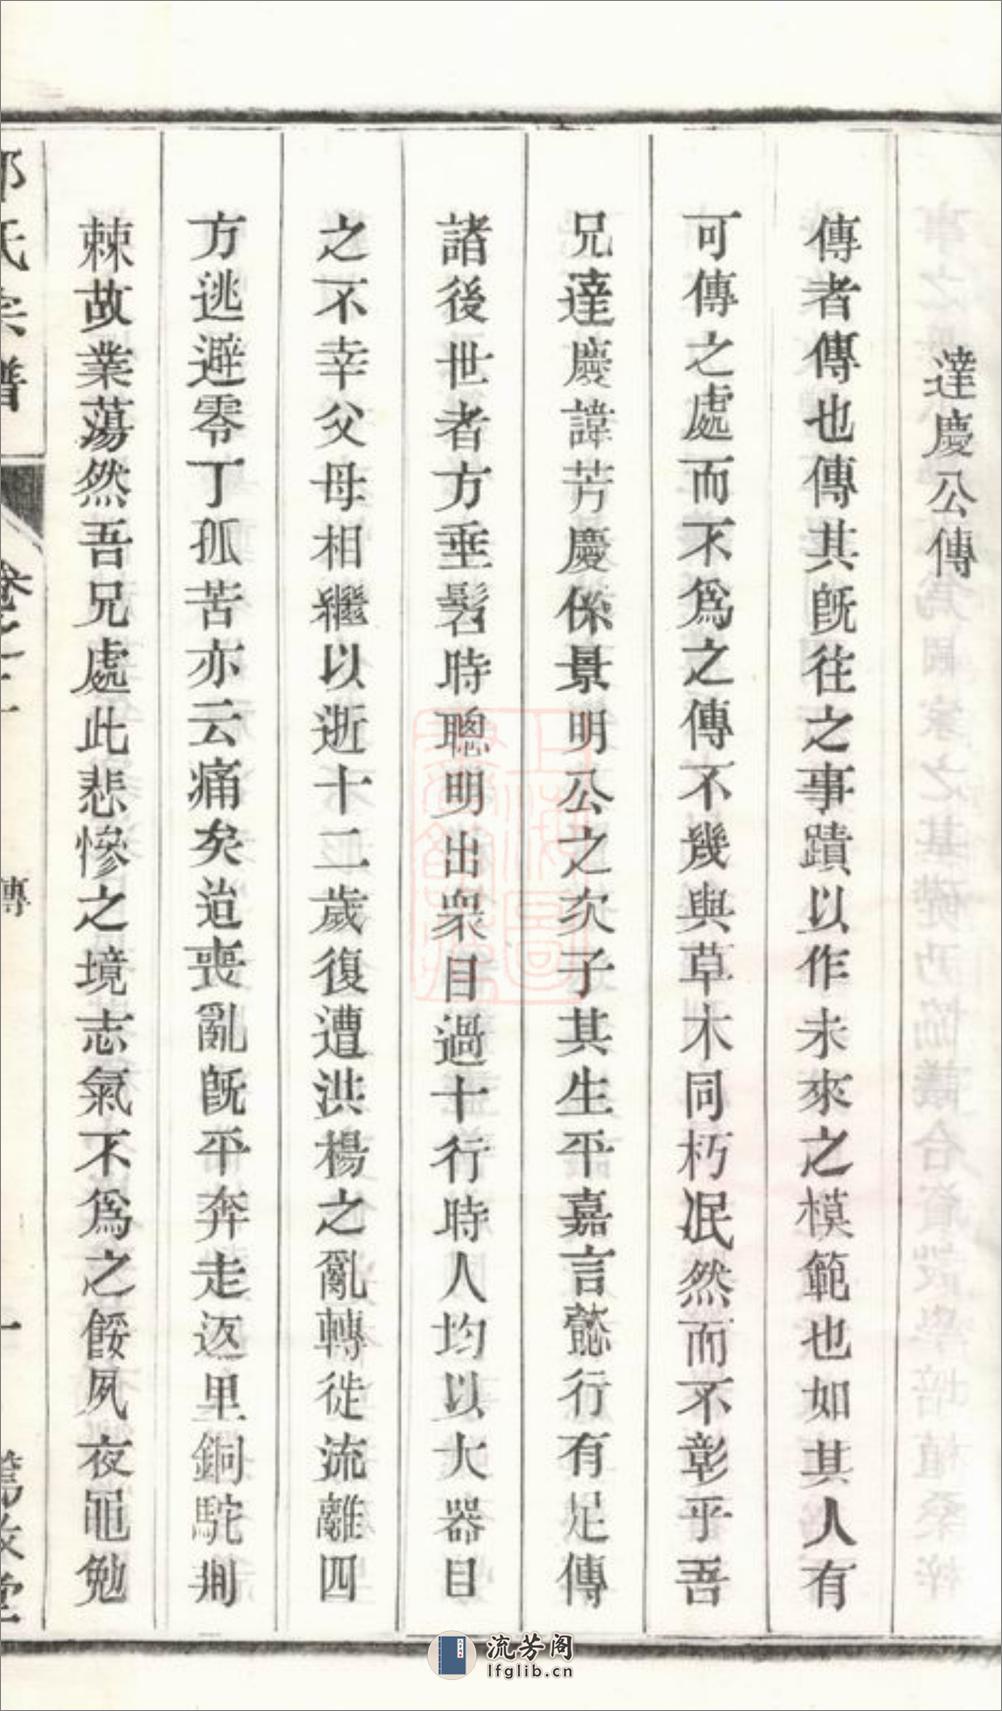 達慶公傳
傳者傳也傳其旣往之事蹟以作未來之模範也如其人有
可傳之處而不爲之傳不幾與草木同朽泯然而不彰乎吾
兄達慶諱芳慶係景明公之次子其生平嘉言懿行有足傳
諸後世者方垂髫時聰明出衆目過十行時人均以大器目
之不幸父母相繼以逝十二歲復遭洪楊之亂轉徙流離四
方逃避零丁孤苦亦云痛矣迨喪亂旣平奔走返里銅駝荆
棘故業蕩然吾兄處此悲慘之境志氣不爲之餒夙夜黽勉
氏宗譜
卷之
傳
一
堂
流芳阁
lfglib.cn